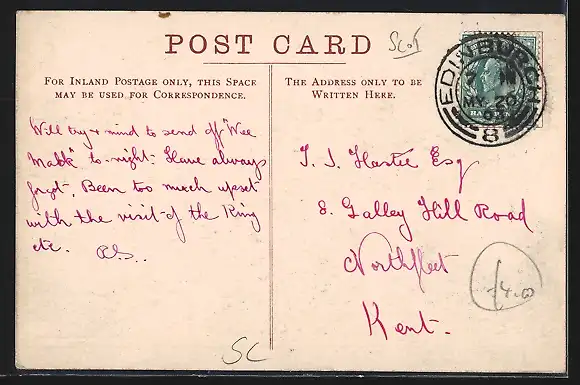 POST CARD
Scot
FOR INLAND POSTAGE ONLY, THIS SPACE
MAY BE USED FOR CORRESPONDENCE.
THE ADDRESS ONLY TO BE
WRITTEN HERE.
EDINBURGH
MY 20
8
Will try & mind to send off "Wee
to-night. Have always
forgot. Been too much upset
with the visit of the King
etc.
T. J. Hastie Esq
8. Galley Hill Road
Northfleet
Kent.
SC